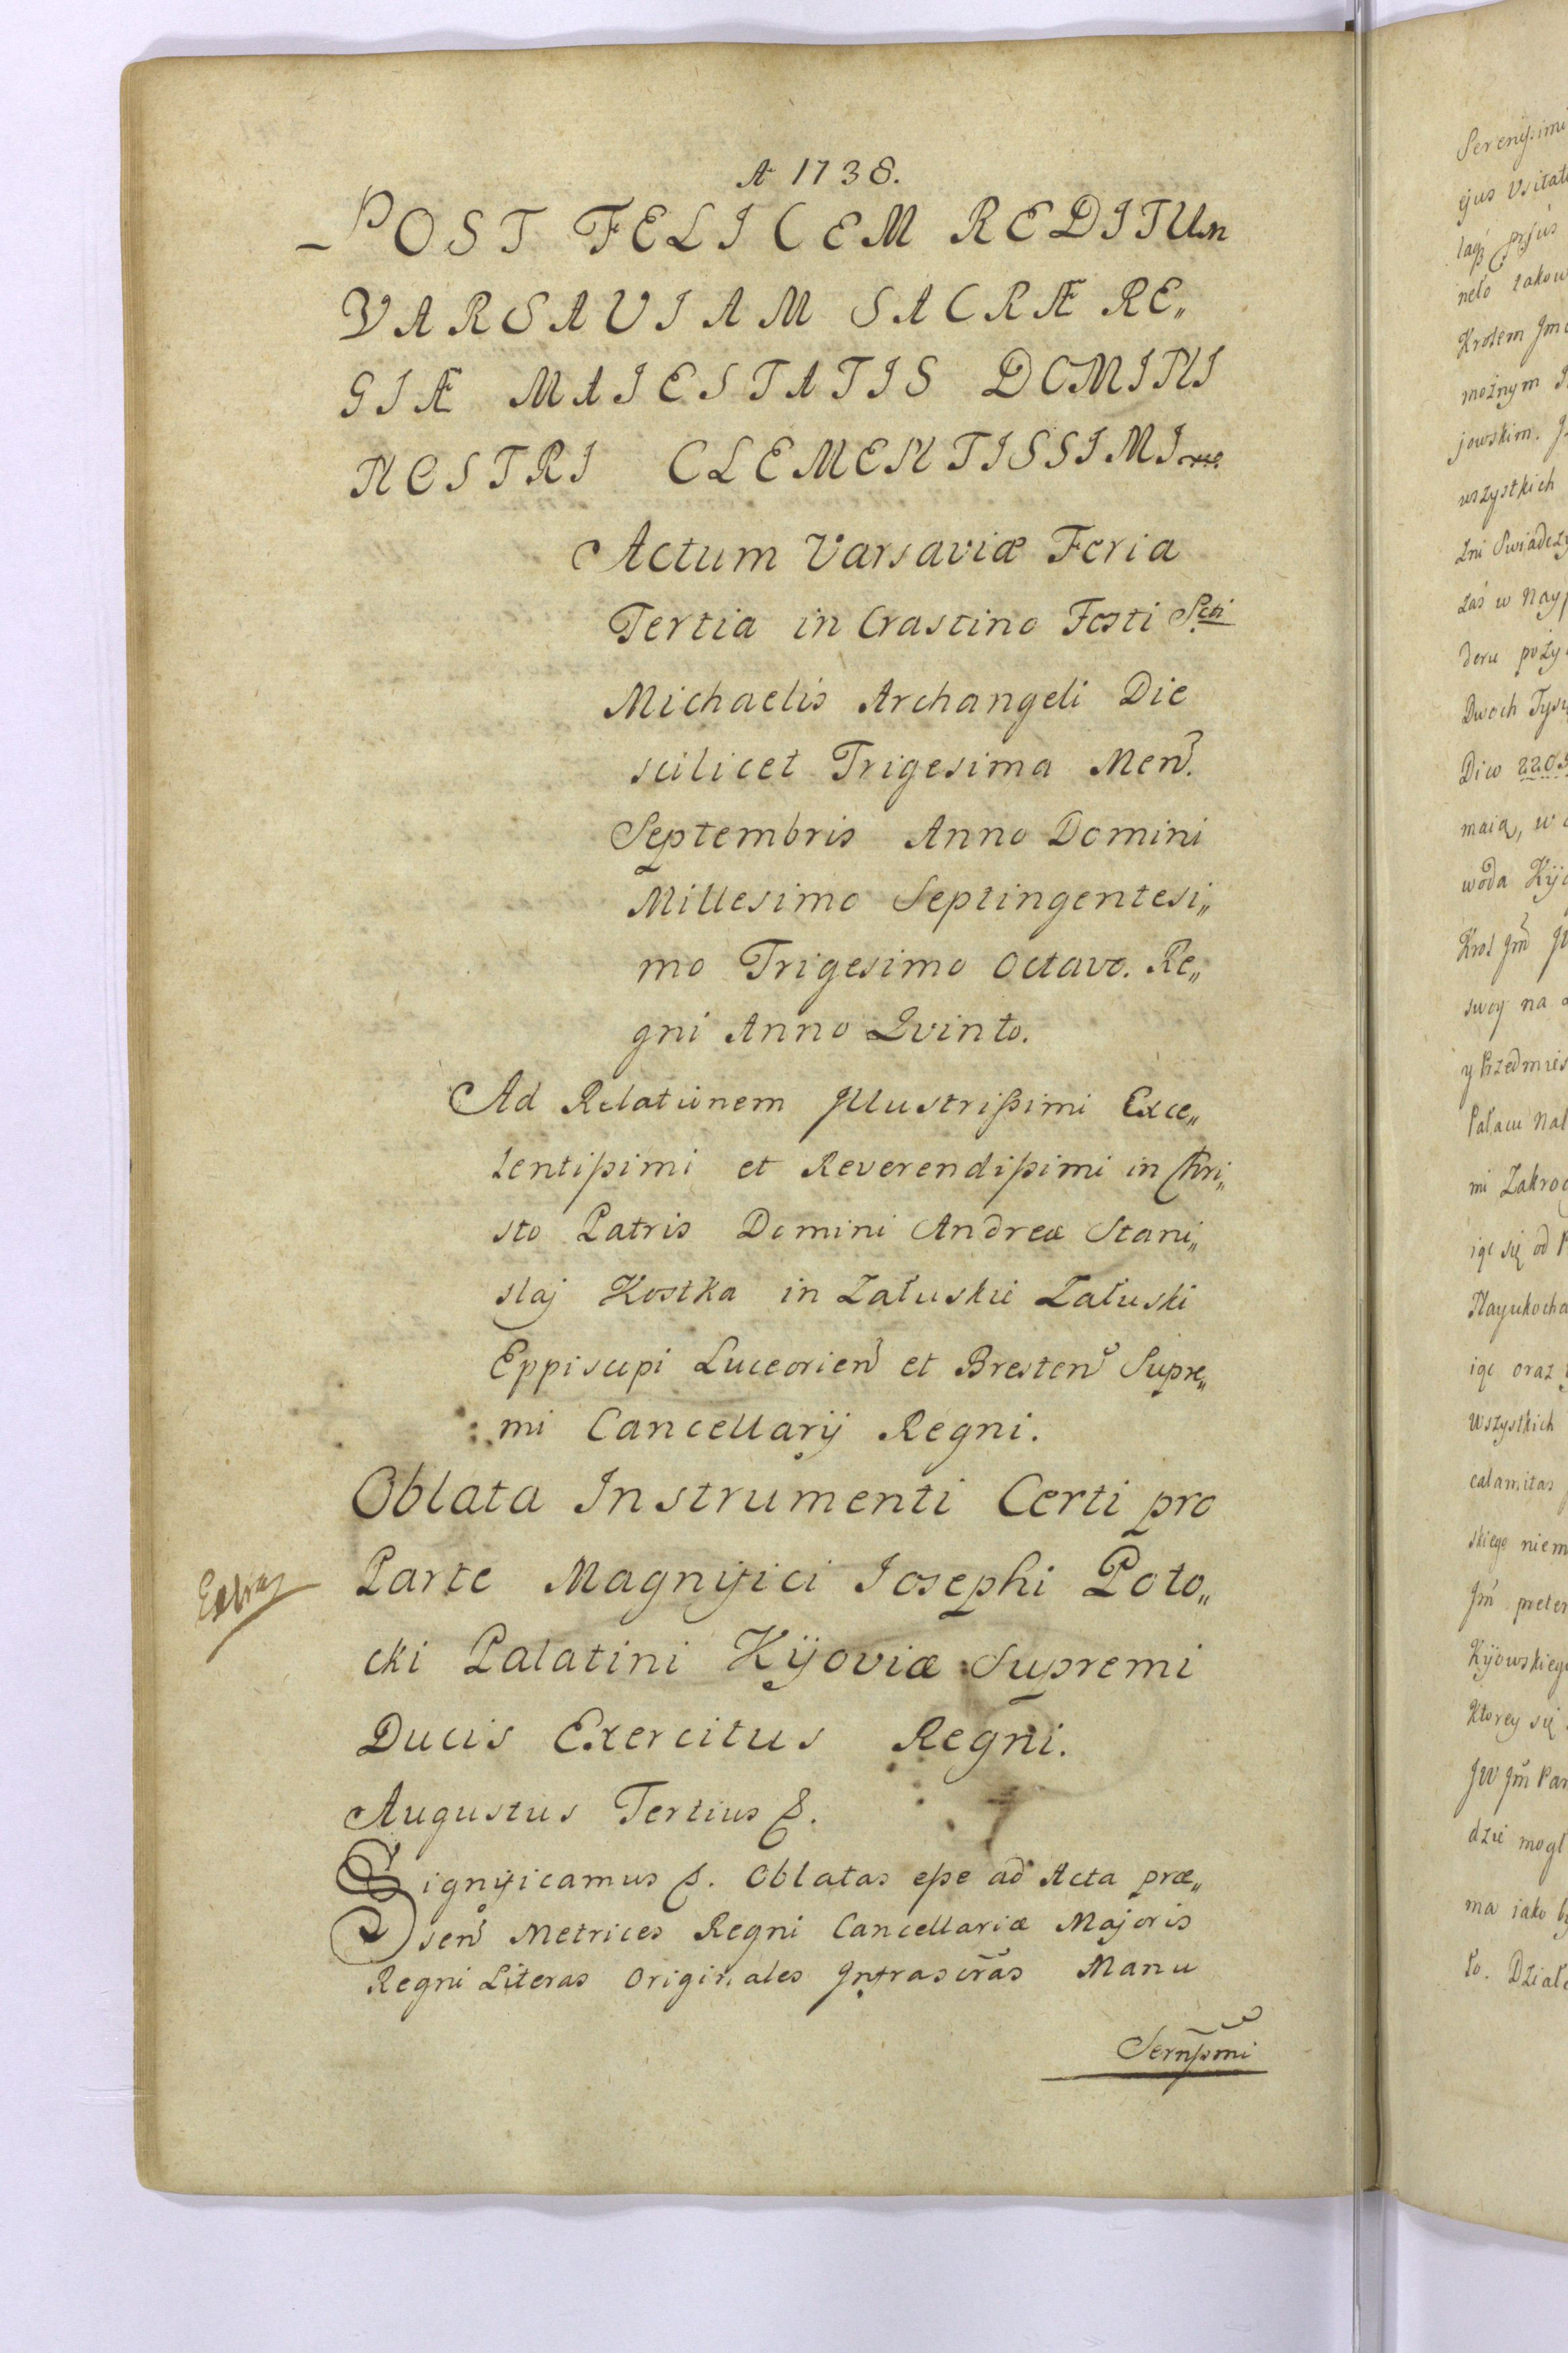 A 1738.
POST FELICEM REDITUM
VARSAVIAM SACRÆ RE„
GIÆ MAJESTATIS DOMINI
NOSTRI CLEMENTISSIMI
Actum Varsaviæ Feria
Tertia in Crastino Festi Scti
Michaelis Archangeli Die
scilicet Trigesima Men.
Septembris Anno Domini
Millesimo Septingentesi„
mo Trigesimo Octavo. Re„
gni Anno Qvinto.
Ad Relationem Jllustrißimi Exce„
lentißimi et Reverendißimi in Chri„
sto Patris Domini Andreæ Stani„
slaj Kostka in Załuskie Załuski
Eppiscopi Luceorien et Bresten Supre„
mi Cancellarij Regni.
Oblata Instrumenti Certi pro
Parte Magnifici Josephi Poto„
cki Palatini Kijoviæ Supremi
Ducis Exercitus Regni.
Augustus Tertius &.
Significamus &. Oblatas eße ad Acta præ„
sen Metrices Regni Cancellariæ Majoris
Regni Literas Originales Jnfrascras Manu
Sernßmi
Serenißimi
ejus Usitat
prjus
neło takow
Krolem Jm
możnym
jowskim. J
wszystkich
Zni Swiadczy
zaś w Nay
deru poży
Dwoch Tysi
Diw 2203
maią, w
woda Kijo
Krol Jm JW
swoy na
y Przedmies
Pałacu Nal
mi Zakroc
iąc się od P
Nayukocha
iąc oraz
Wszystkich
calamitas
skiego niem
Jm preten
Kijowskieg
Ktorey się
JW Jm Pan
dzie mogł
ma iako by
to. Działo